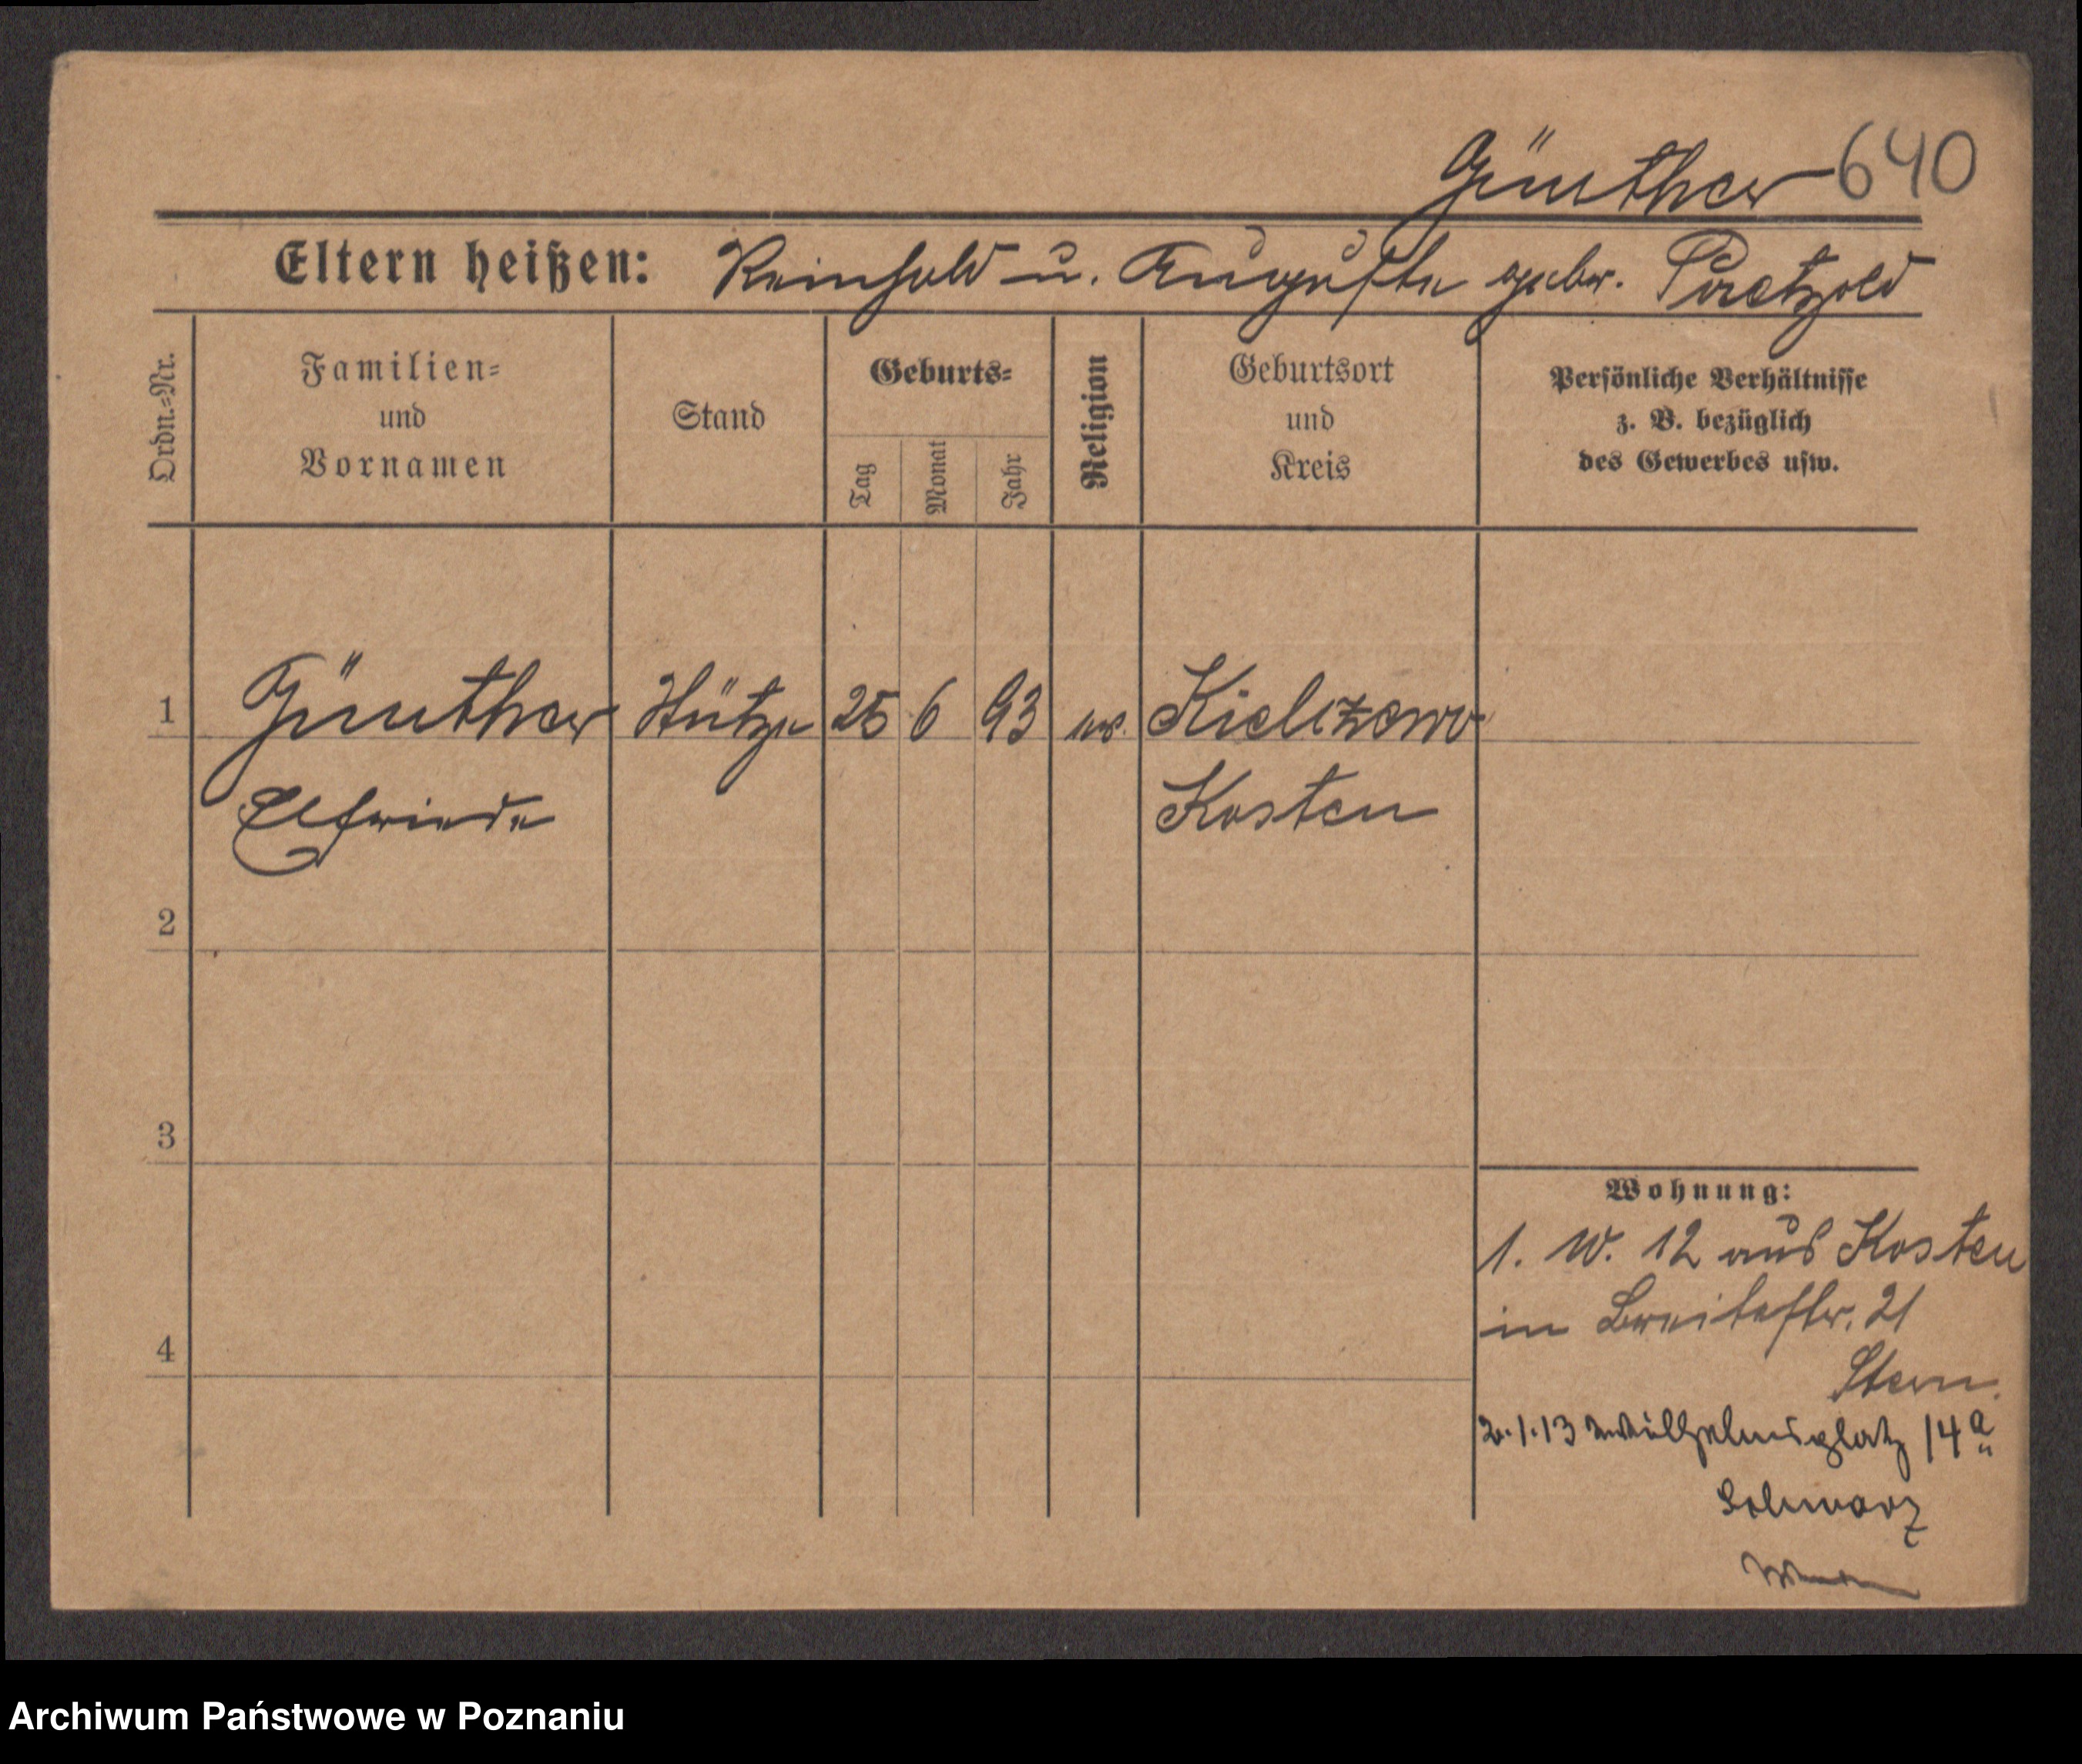 Günther 640
Eltern heißen: Reinhold u. Auguste gebr. Paetzold
Ordn.-Nr.
Familien-
und
Vornamen
Stand
Geburts-
Tag
Monat
Jahr
Religion
Geburtsort
und
Kreis
Persönliche Verhältnisse
z. B. bezüglich
des Gewerbes usw.
1 Günther Stütze 25 6 93 ev. Kielczewo
Elfriede Kosten
2
3
4
Wohnung:
1. 10. 12 aus Kosten
in Breitestr. 21
Stern
2.1.13 Wilhelmsplatz 14a
Schwarz
Archiwum Państwowe w Poznaniu